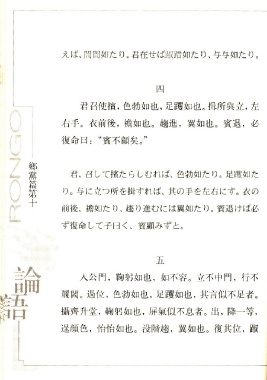 えば、誾誾如たり。君在せば踧踖如たり、与与如たり。
四
君召使擯，色勃如也，足躩如也。揖所與立，左
右手。衣前後，襜如也。趨進，翼如也。賓退，必
復命曰：“賓不顧矣。”
君、召して擯たらしむれば、色勃如たり。足躩如た
り。与に立つ所を揖すれば、其の手を左右にす。衣の
前後、襜如たり、趨り進むには翼如たり、賓退けば必
ず復命して子曰く、賓顧みずと。
五
入公門，鞠躬如也，如不容。立不中門，行不
履閾。過位，色勃如也，足躩如也，其言似不足者。
攝齊升堂，鞠躬如也，屏氣似不息者。出，降一等，
逞顏色，怡怡如也。沒階趨，翼如也。復其位，踧
RONGO
鄉黨篇第十
論語